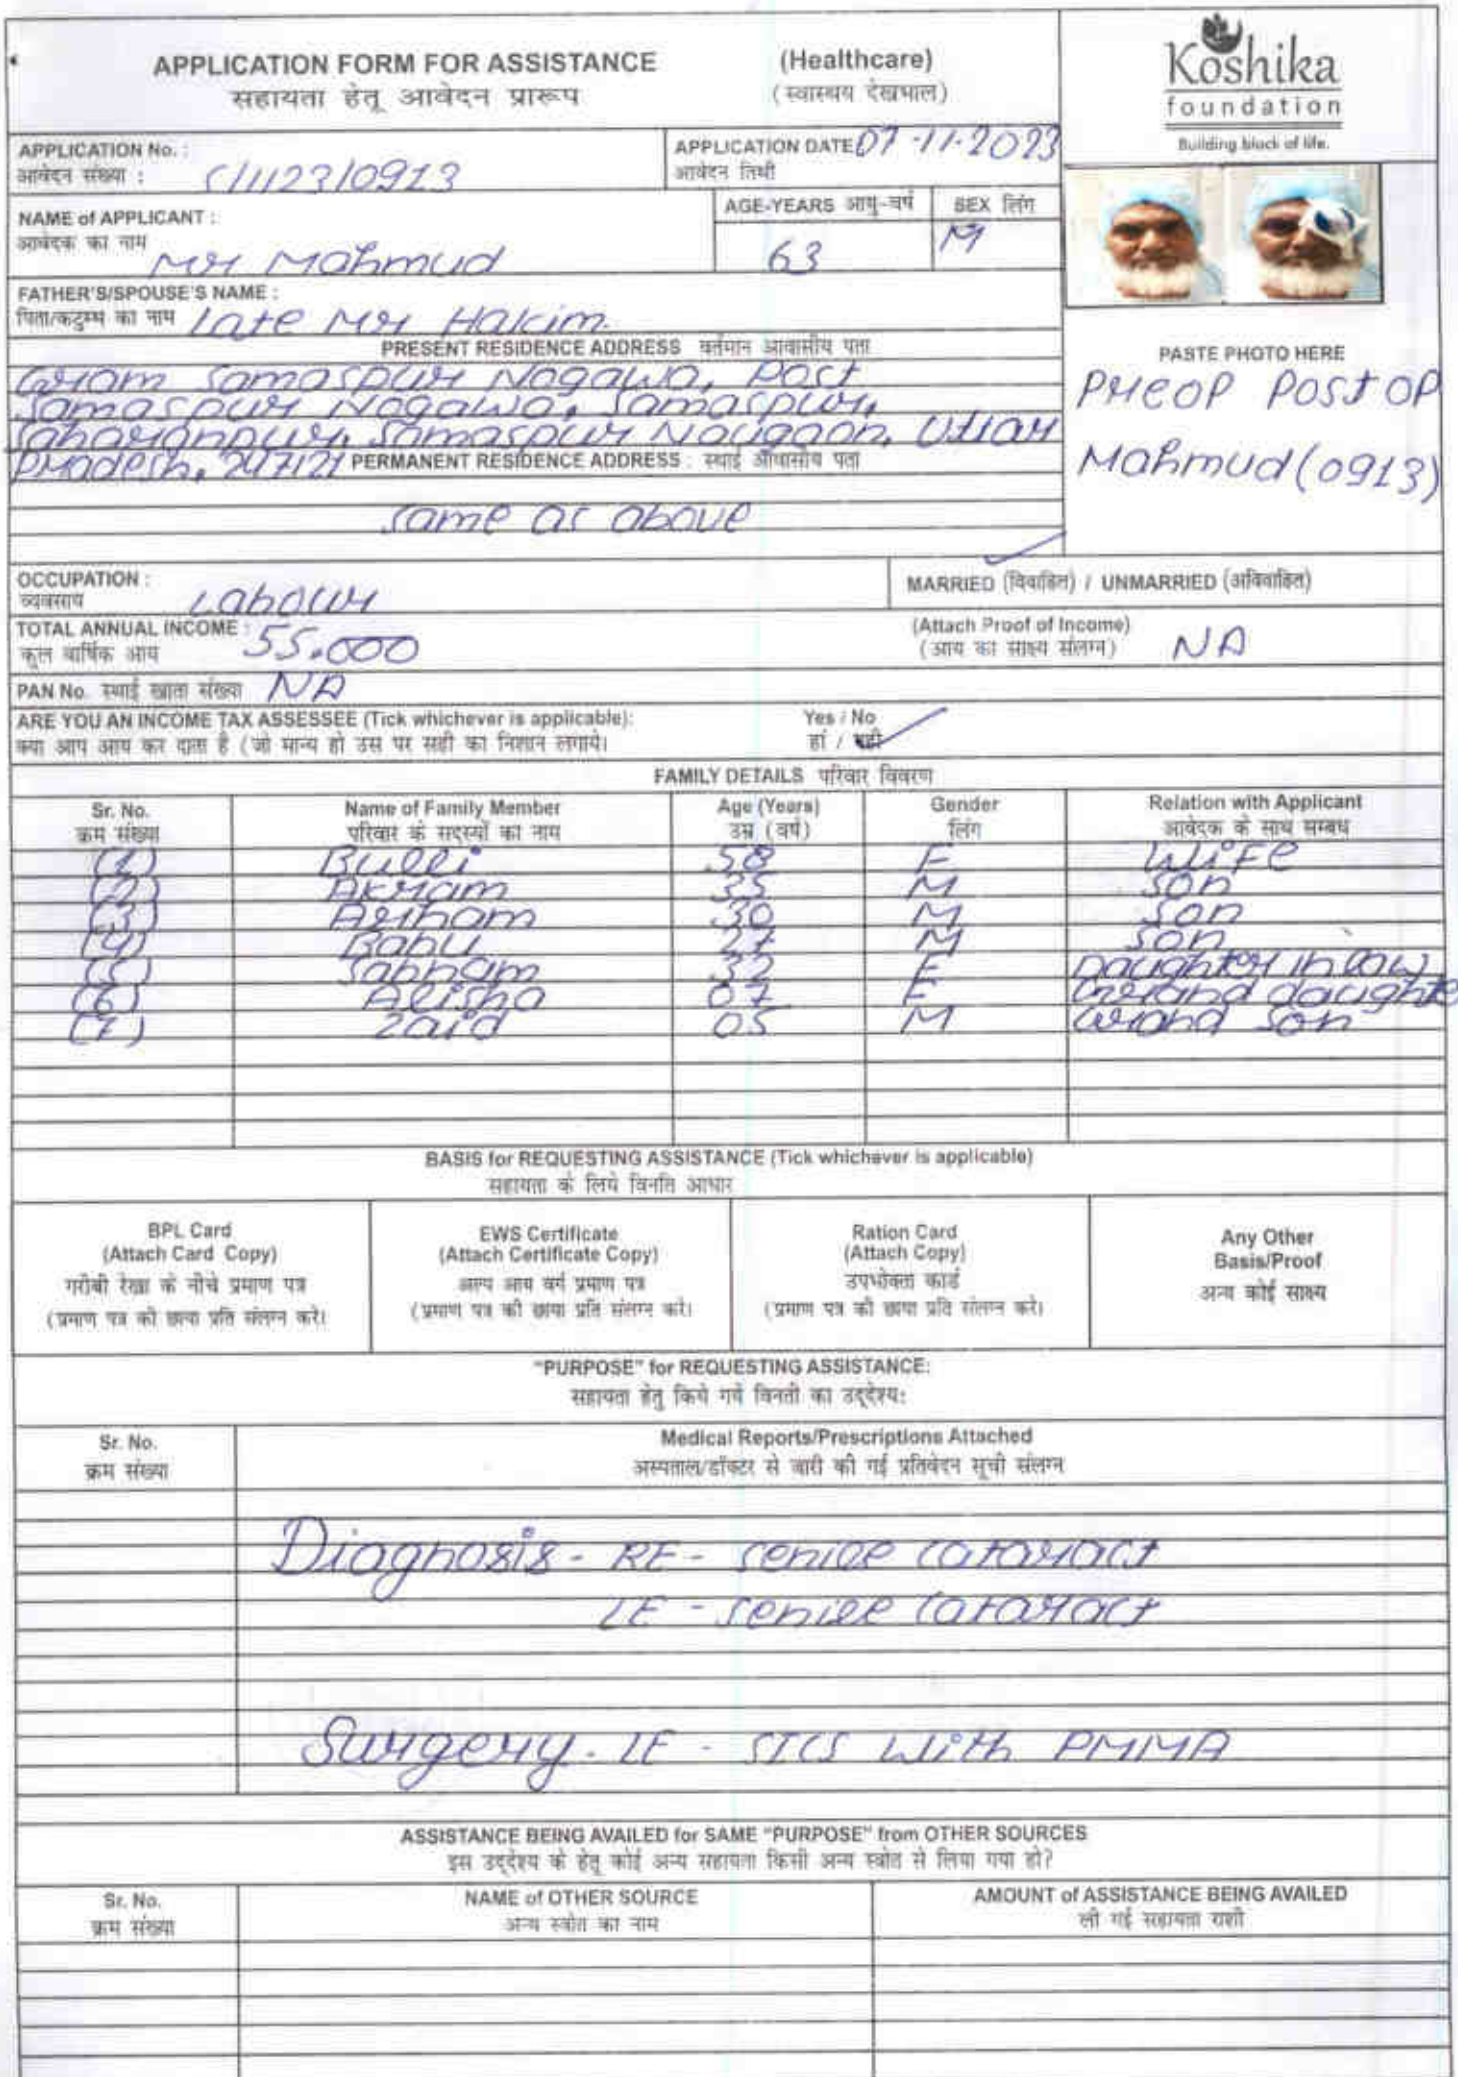 APPLICATION FORM FOR ASSISTANCE (Healthcare)
सहायता हेतू आवेदन प्रारूप (स्वास्थय देखभाल)
Koshika
foundation
Building block of life.
APPLICATION No. :
आवेदन संख्या : C/1123/0913
APPLICATION DATE 07-11-2023
आवेदन तिथी
NAME of APPLICANT :
आवेदक का नाम
Mr Mahmud
AGE-YEARS आयु-वर्ष
63
SEX लिंग
M
FATHER'S/SPOUSE'S NAME :
पिता/कटुम्ब का नाम Late Mr Hakim
PRESENT RESIDENCE ADDRESS वर्तमान आवासीय पता
Gram Samaspur Nagawa, Post
Samaspur Nagawa, Samaspur,
Saharanpur, Samaspur Naugaon, Uttar
Pradesh, 247121
PERMANENT RESIDENCE ADDRESS : स्थाई आवासीय पता
Same as above
PASTE PHOTO HERE
Preop Post op
Mahmud (0913)
OCCUPATION :
व्यवसाय Labour
MARRIED (विवाहित) / UNMARRIED (अविवाहित)
TOTAL ANNUAL INCOME : 55,000
कुल वार्षिक आय
(Attach Proof of Income)
(आय का साक्ष्य संलग्न) NA
PAN No. स्थाई खाता संख्या NA
ARE YOU AN INCOME TAX ASSESSEE (Tick whichever is applicable): Yes / No
क्या आप आय कर दाता है (जो मान्य हो उस पर सही का निशान लगाये। हां / नही
FAMILY DETAILS परिवार विवरण
Sr. No. Name of Family Member Age (Years) Gender Relation with Applicant
क्रम संख्या परिवार के सदस्यों का नाम उम्र (वर्ष) लिंग आवेदक के साथ सम्बध
(1) Bulli 58 F Wife
(2) Akram 35 M Son
(3) Ariham 30 M Son
(4) Babu 27 M Son
(5) Sabnam 32 F Daughter in law
(6) Alisha 07 F Grand daughte
(7) Zaid 05 M Grand Son
BASIS for REQUESTING ASSISTANCE (Tick whichever is applicable)
सहायता के लिये विनति आधार
BPL Card
(Attach Card Copy)
गरीबी रेखा के नीचे प्रमाण पत्र
(प्रमाण पत्र की छाया प्रति संलग्न करे।
EWS Certificate
(Attach Certificate Copy)
अल्प आय वर्ग प्रमाण पत्र
(प्रमाण पत्र की छाया प्रति संलग्न करे।
Ration Card
(Attach Copy)
उपभोक्ता कार्ड
(प्रमाण पत्र की छाया प्रति संलग्न करे।
Any Other
Basis/Proof
अन्य कोई साक्ष्य
"PURPOSE" for REQUESTING ASSISTANCE:
सहायता हेतु किये गये विनती का उद्देश्य:
Sr. No. Medical Reports/Prescriptions Attached
क्रम संख्या अस्पताल/डॉक्टर से जारी की गई प्रतिवेदन सूची संलग्न
Diagnosis - RE - Senile Cataract
LE - Senile Cataract
Surgery - LE - SICS With PMMA
ASSISTANCE BEING AVAILED for SAME "PURPOSE" from OTHER SOURCES
इस उद्देश्य के हेतू कोई अन्य सहायता किसी अन्य स्त्रोत से लिया गया हो?
Sr. No. NAME of OTHER SOURCE AMOUNT of ASSISTANCE BEING AVAILED
क्रम संख्या अन्य स्त्रोत का नाम ली गई सहायता राशी